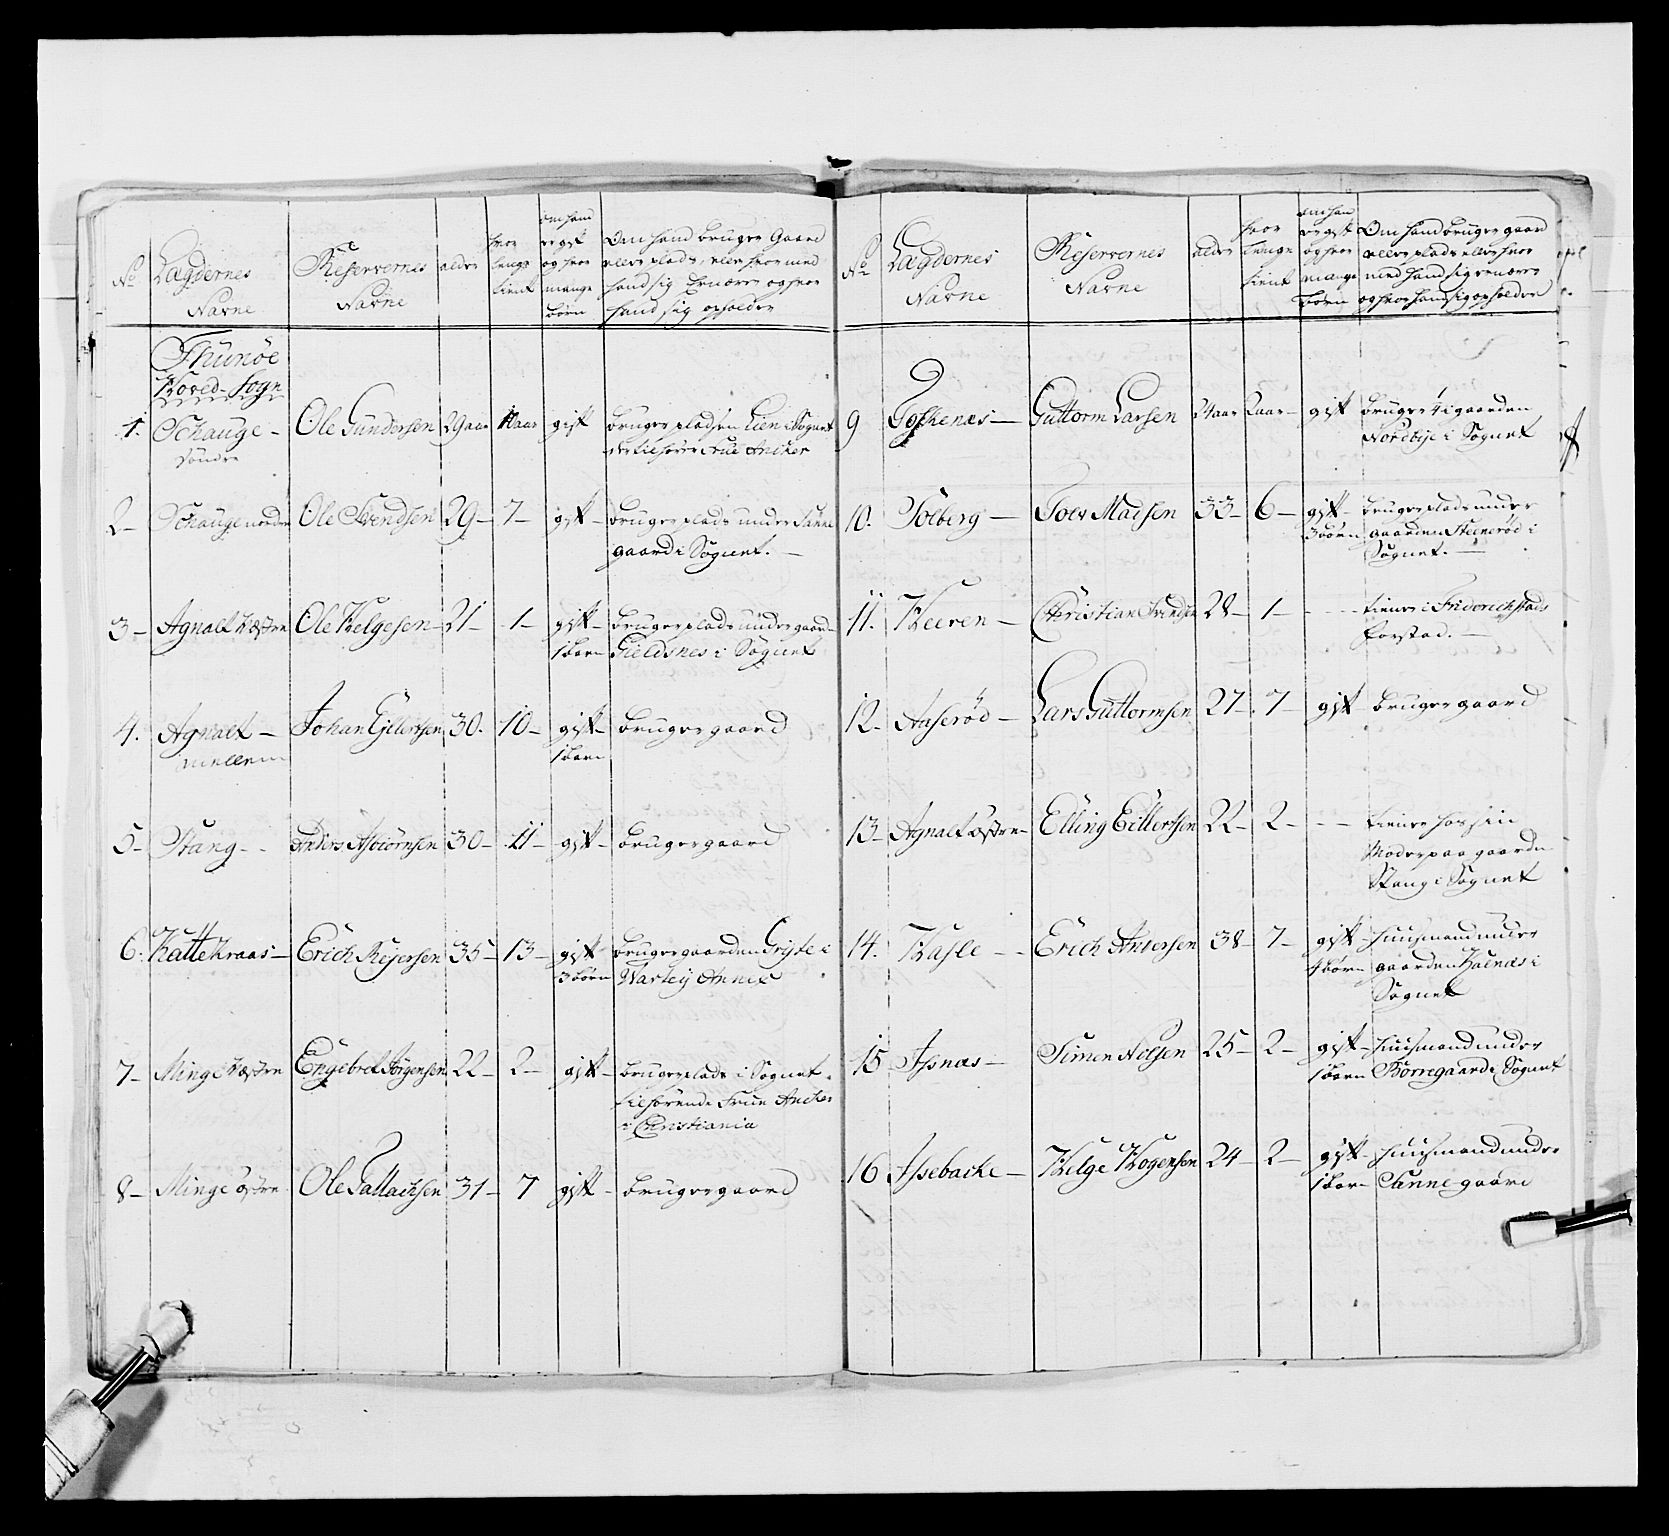 No
Lægdernes
Navne
Reservernes
Navne
alder
hvor
lenge
tient
om hand
er gift
og hvor
mange
børn
Om hand bruger Gaard
eller plads, eller hvor med
hand sig Ernærer og hvor
hand sig opholder
Thunøe
Hoved-Sogn
1. Schauge - Ole Gundersen 29 aar 10 aar gift bruger pladsen Lien i Sognet
søndre tilhører Frue Ancher
2- Schauge nordre Ole Svendsen 29- 7- gift- bruger plads under Sanne
gaard i Sognet.
3- Agnalt Væstre Ole Helgesen- 21- 1- gift- bruger plads under gaarden
1 barn Gieldsnes i Sognet
4. Agnalt - Johan Eilertsen 30. 10- gift- bruger gaard
mellem 1 barn
5- Stang- Anders Asbiørnsen 30- 11- gift- bruger gaard
6. Kattekraas- Erich Rejersen 35- 13- gift bruger gaarden Griste i
3 børn Warteij Annex
7- Minge Væstre Engebret Jørgensen 22- 2- gift- bruger plads i Sognet
tilhørende Frue Ancher
i Christiania
8- Minge østre Ole Tallachsen 31- 7 gift- bruger gaard
No
Lægdernes
Navne
Reservernes
Navne
alder
hvor
lenge
tient
om han
er gift
og hvor
mange
børn
Om hand bruger gaard
eller plads eller hvor
med hand sig ernærer
og hvor hand sig opholder
9 Guttorm Larsen 24 aar 2 aar- gift bruger i gaarden
Nordbye i Sognet
10. Solberg - Toer Madsen 33- 6- gift- bruger plads under
3 børn gaarden Steenerød i
Sognet.
11. Heeren- Christian Svendsen 28- 1- tiener i Friderichstads
Forstad.
12- Aaserød- Lars Guttormsen 27- 7- gift bruger gaard
13- Agnalt østre- Elling Eillertsen 22- 2- tiener hos sin
Moder paa gaarden
Stang i Sognet
14. Hasle - Erich Andersen 38- 7- gift- huusmand under
4 børn gaarden Kalnæs i
Sognet
15 Isnæs- Simen Nilsen 25- 2- gift- huusmand under
1 barn Borregaard i Sognet
16 Issebache- Helge Hogensen 24- 2- gift- huusmand under
1 barn Sanne gaard